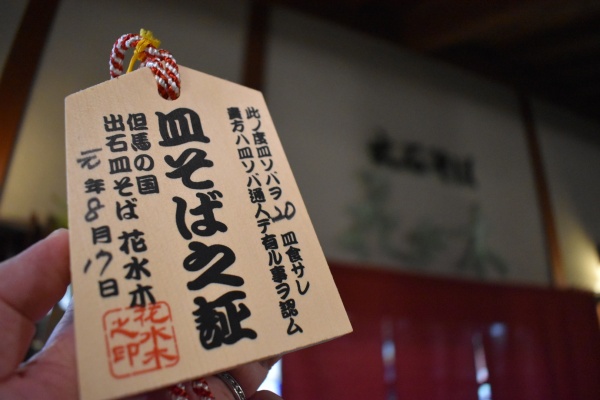 此ノ度皿ソバヲ20皿食サレ
貴方ハ皿ソバ通人デ有ル事ヲ認ム
皿そば之証
但馬の国
出石皿そば 花水木
元年8月17日
花水木
之印